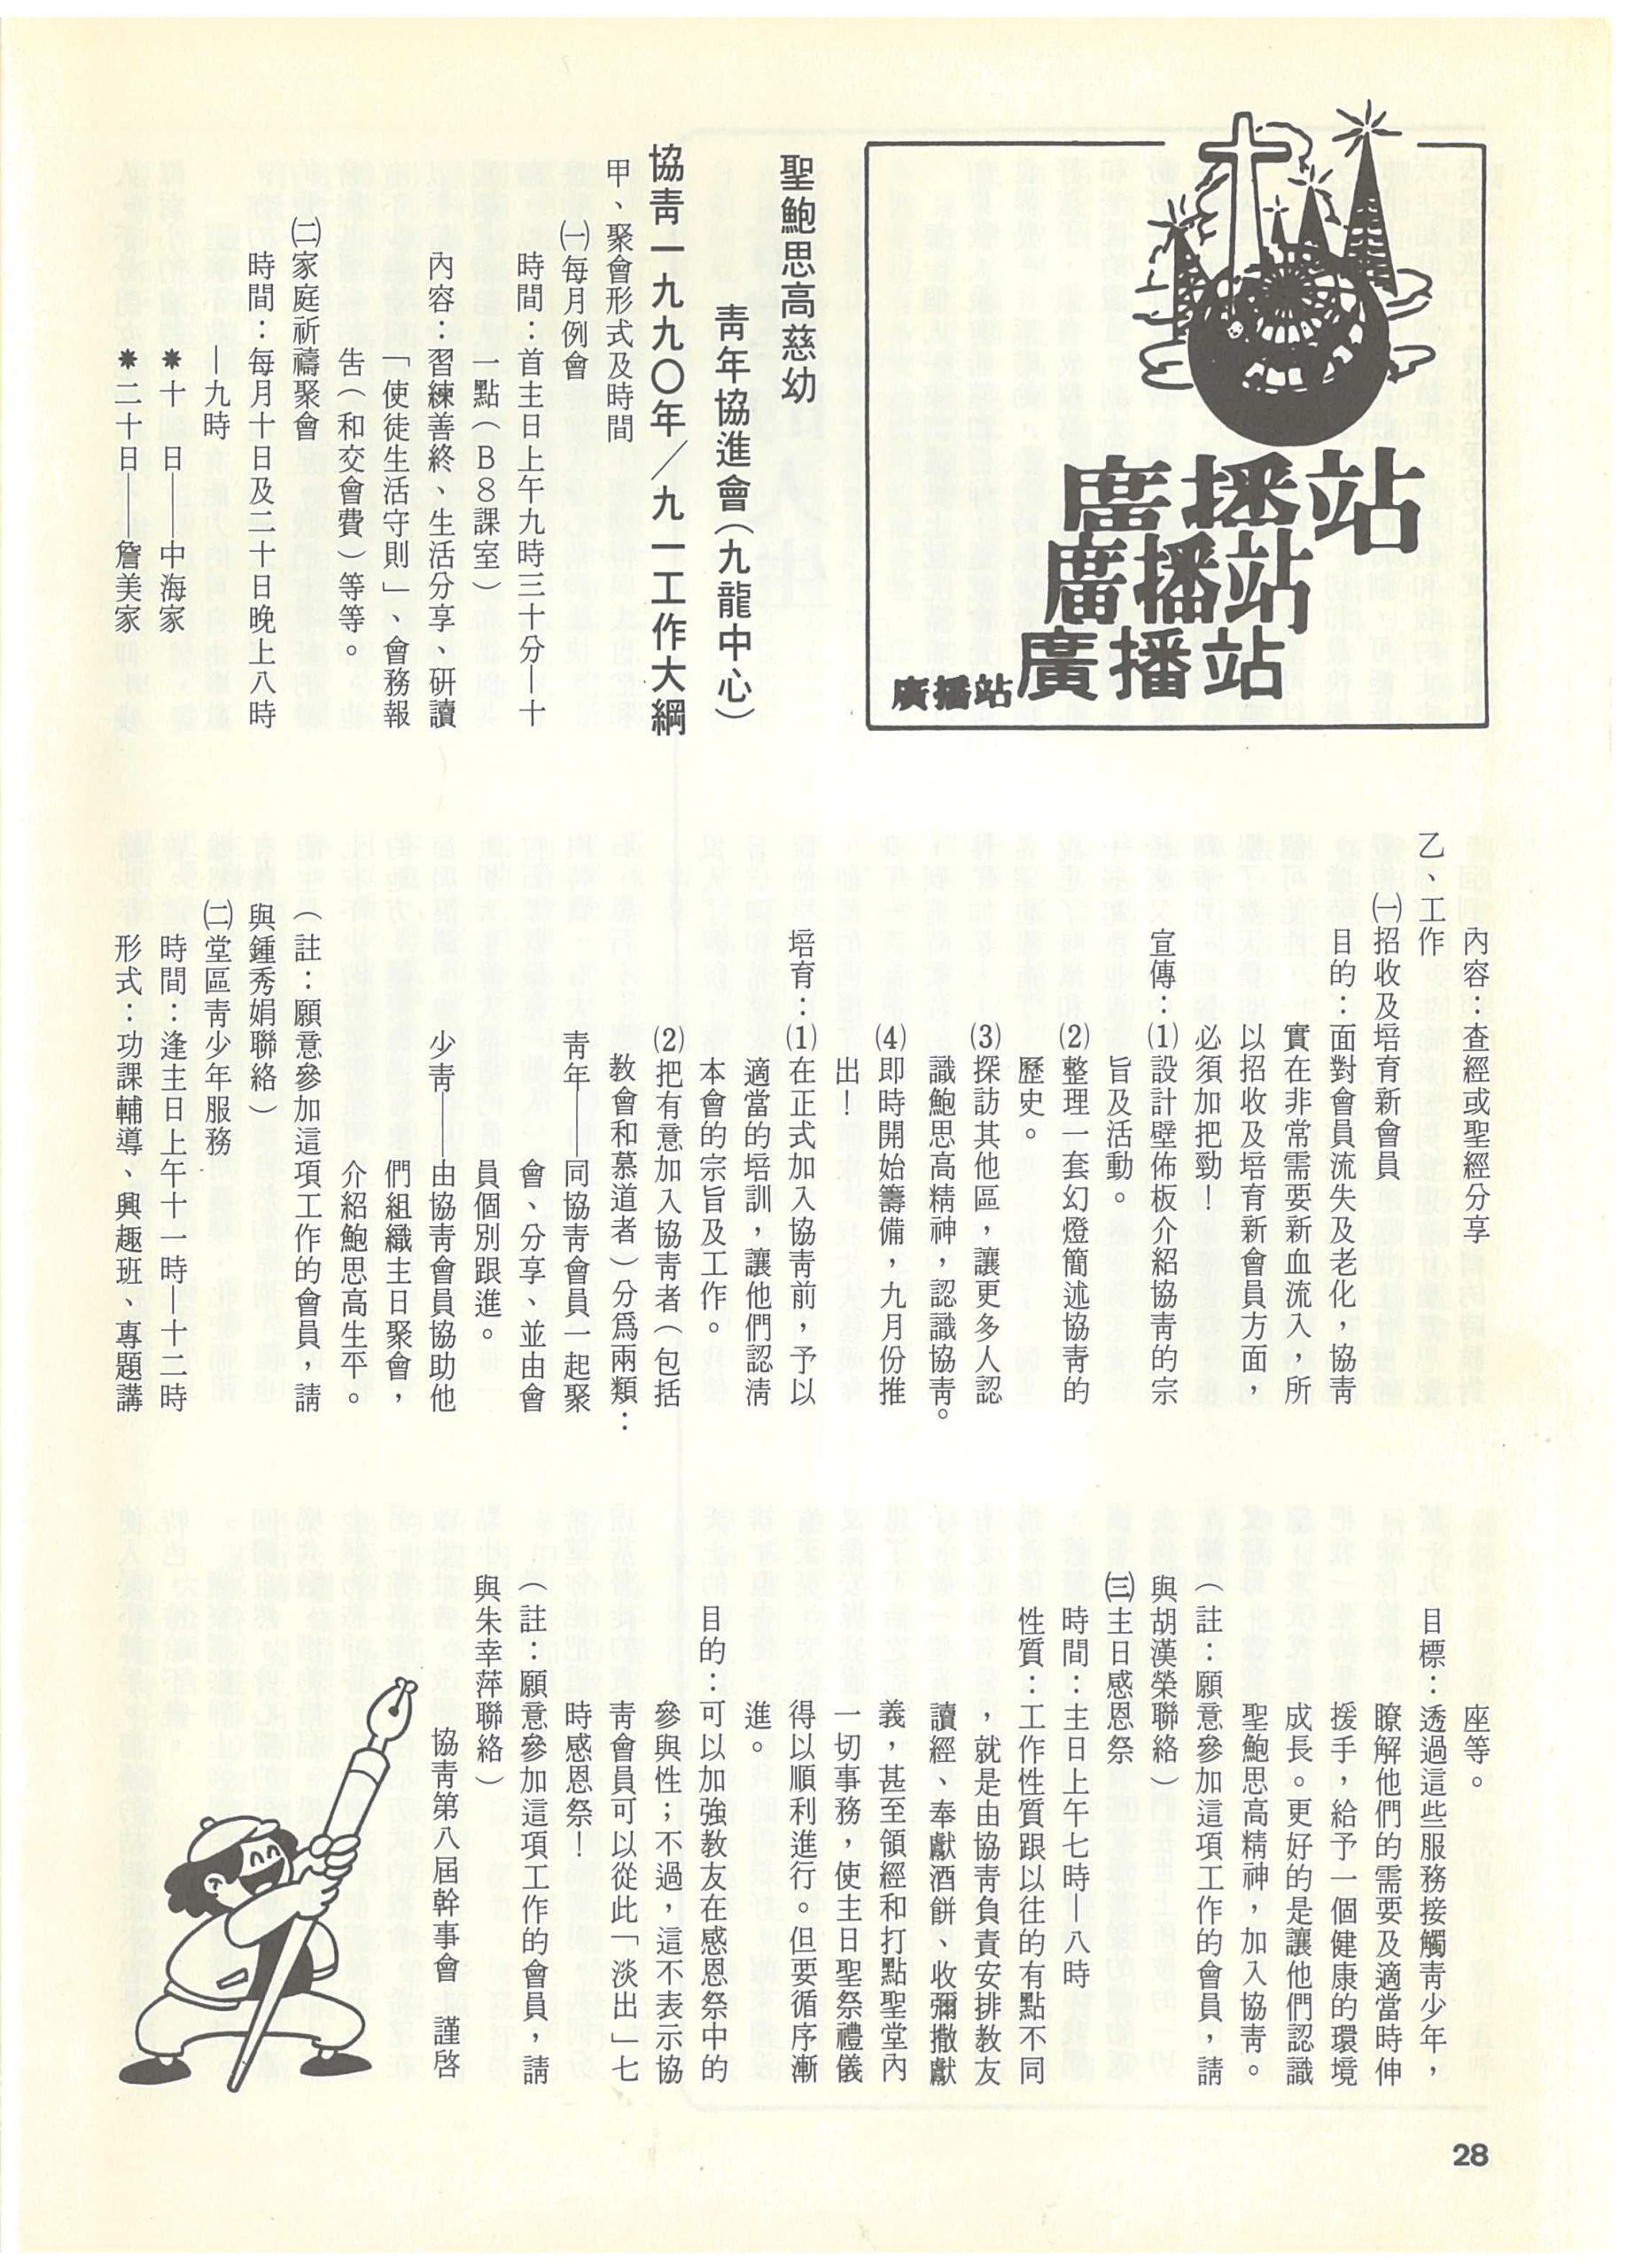 廣播站
廣播站
廣播站
廣播站
聖鮑思高慈幼
青年協進會（九龍中心）
協青一九九〇年／九一工作大綱
甲、聚會形式及時間
㈠每月例會
時間：首主日上午九時三十分—十
一點（B8課室）
內容：習練善終、生活分享、研讀
「使徒生活守則」、會務報
告（和交會費）等等。
㈡家庭祈禱聚會
時間：每月十日及二十日晚上八時
—九時
＊十　日——中海家
＊二十日——詹美家
內容：查經或聖經分享
乙、工作
㈠招收及培育新會員
目的：面對會員流失及老化，協青
實在非常需要新血流入，所
以招收及培育新會員方面，
必須加把勁！
宣傳：⑴設計壁佈板介紹協青的宗
旨及活動。
⑵整理一套幻燈簡述協青的
歷史。
⑶探訪其他區，讓更多人認
識鮑思高精神，認識協青。
⑷即時開始籌備，九月份推
出！
培育：⑴在正式加入協青前，予以
適當的培訓，讓他們認清
本會的宗旨及工作。
⑵把有意加入協青者（包括
教會和慕道者）分爲兩類：
青年——同協青會員一起聚
會、分享、並由會
員個別跟進。
少青——由協青會員協助他
們組織主日聚會，
介紹鮑思高生平。
（註：願意參加這項工作的會員，請
與鍾秀娟聯絡）
㈡堂區青少年服務
時間：逢主日上午十一時—十二時
形式：功課輔導、興趣班、專題講
座等。
目標：透過這些服務接觸青少年，
瞭解他們的需要及適當時伸
援手，給予一個健康的環境
成長。更好的是讓他們認識
聖鮑思高精神，加入協青。
（註：願意參加這項工作的會員，請
與胡漢榮聯絡）
㈢主日感恩祭
時間：主日上午七時—八時
性質：工作性質跟以往的有點不同
，就是由協青負責安排教友
讀經、奉獻酒餅、收彌撒獻
義，甚至領經和打點聖堂內
一切事務，使主日聖祭禮儀
得以順利進行。但要循序漸
進。
目的：可以加強教友在感恩祭中的
參與性；不過，這不表示協
青會員可以從此「淡出」七
時感恩祭！
（註：願意參加這項工作的會員，請
與朱幸萍聯絡）
協青第八屆幹事會　謹啓
28